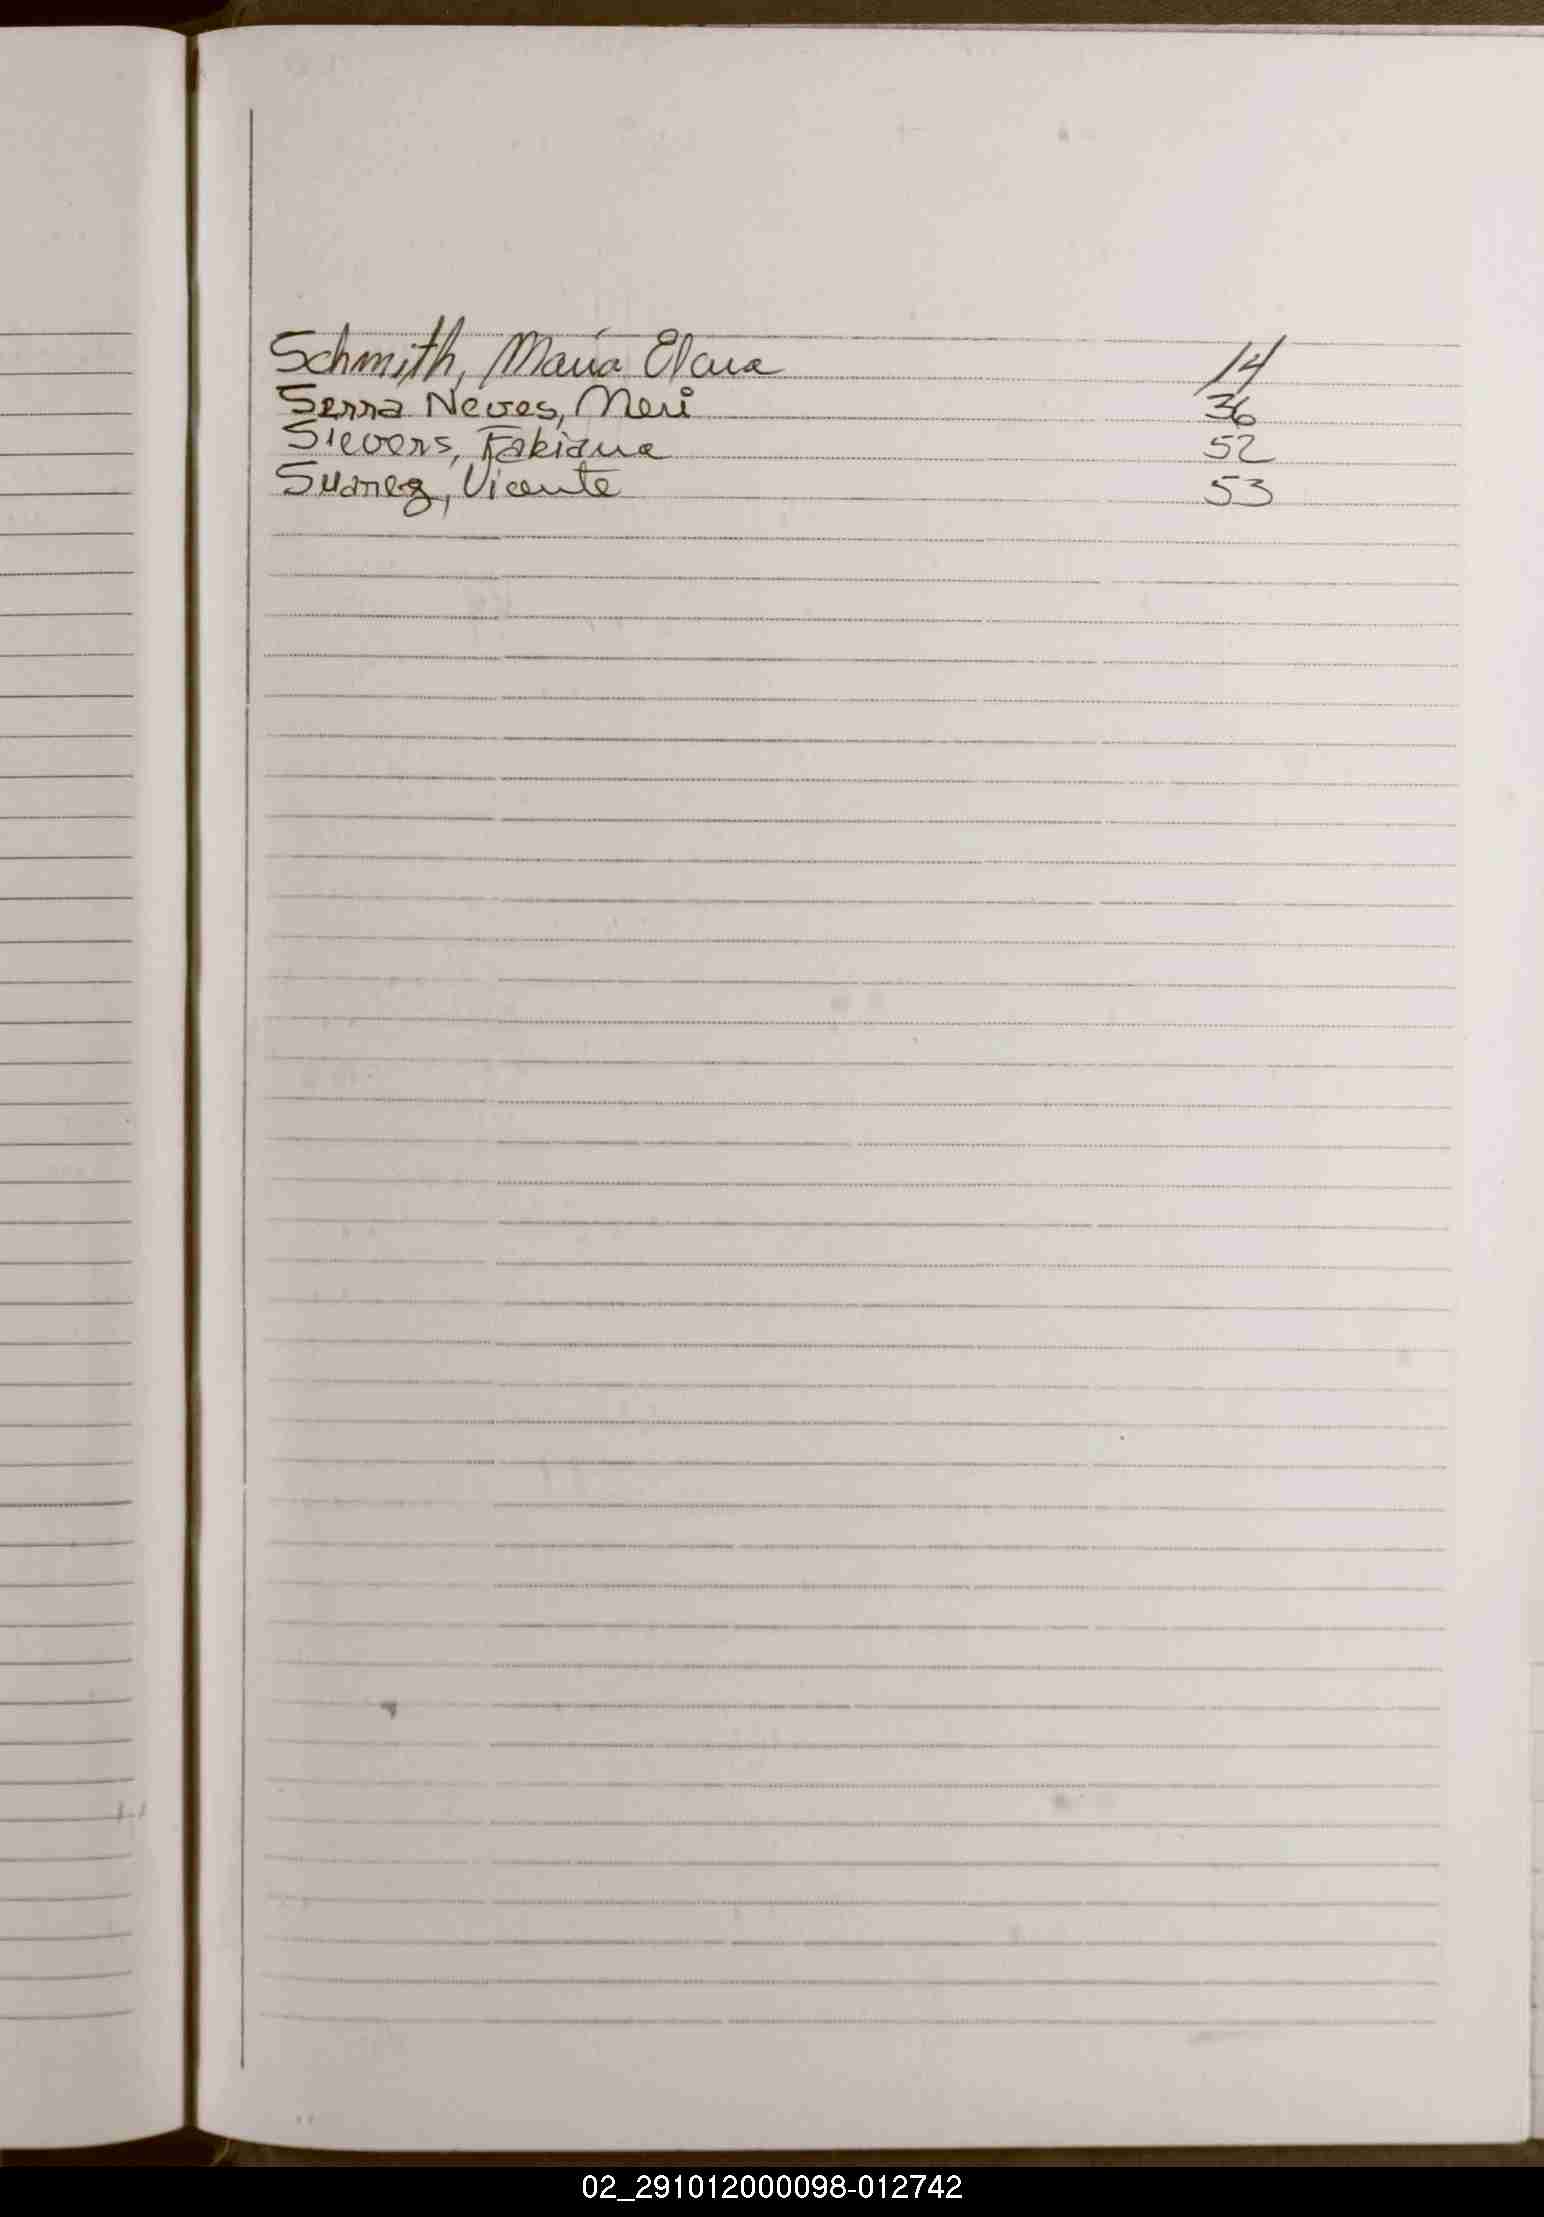 Schmith, María Elena 14
Serra Neves, Meri 36
Sievers, Fabiana 52
Suarez, Vicente 53
02_291012000098-012742